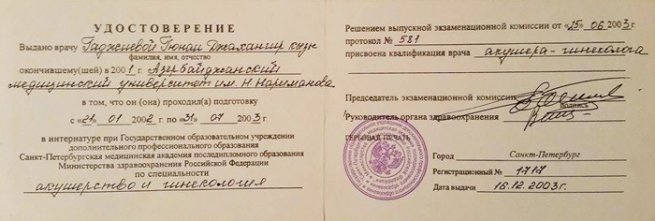 УДОСТОВЕРЕНИЕ
Выдано врачу Гаджиевой Гюнай Джахангир кызы
фамилия, имя, отчество
окончившему(шей) в 2001 г. Азербайджанский
медицинский университет им. Н. Нариманова
в том, что он (она) проходил(а) подготовку
с «21» 01 2002 г. по «31» 07 2003 г.
в интернатуре при Государственном образовательном учреждении
дополнительного профессионального образования
Санкт-Петербургская медицинская академия последипломного образования
Министерства здравоохранения Российской Федерации
по специальности
акушерство и гинекология
Решением выпускной экзаменационной комиссии от «25» 06 2003 г.
протокол № 581
присвоена квалификация врача акушера-гинеколога
Председатель экзаменационной комиссии
подпись
Руководитель органа здравоохранения
ГЕРБОВАЯ ПЕЧАТЬ
Город Санкт-Петербург
Регистрационный № 1717
Дата выдачи 16.12.2003 г.